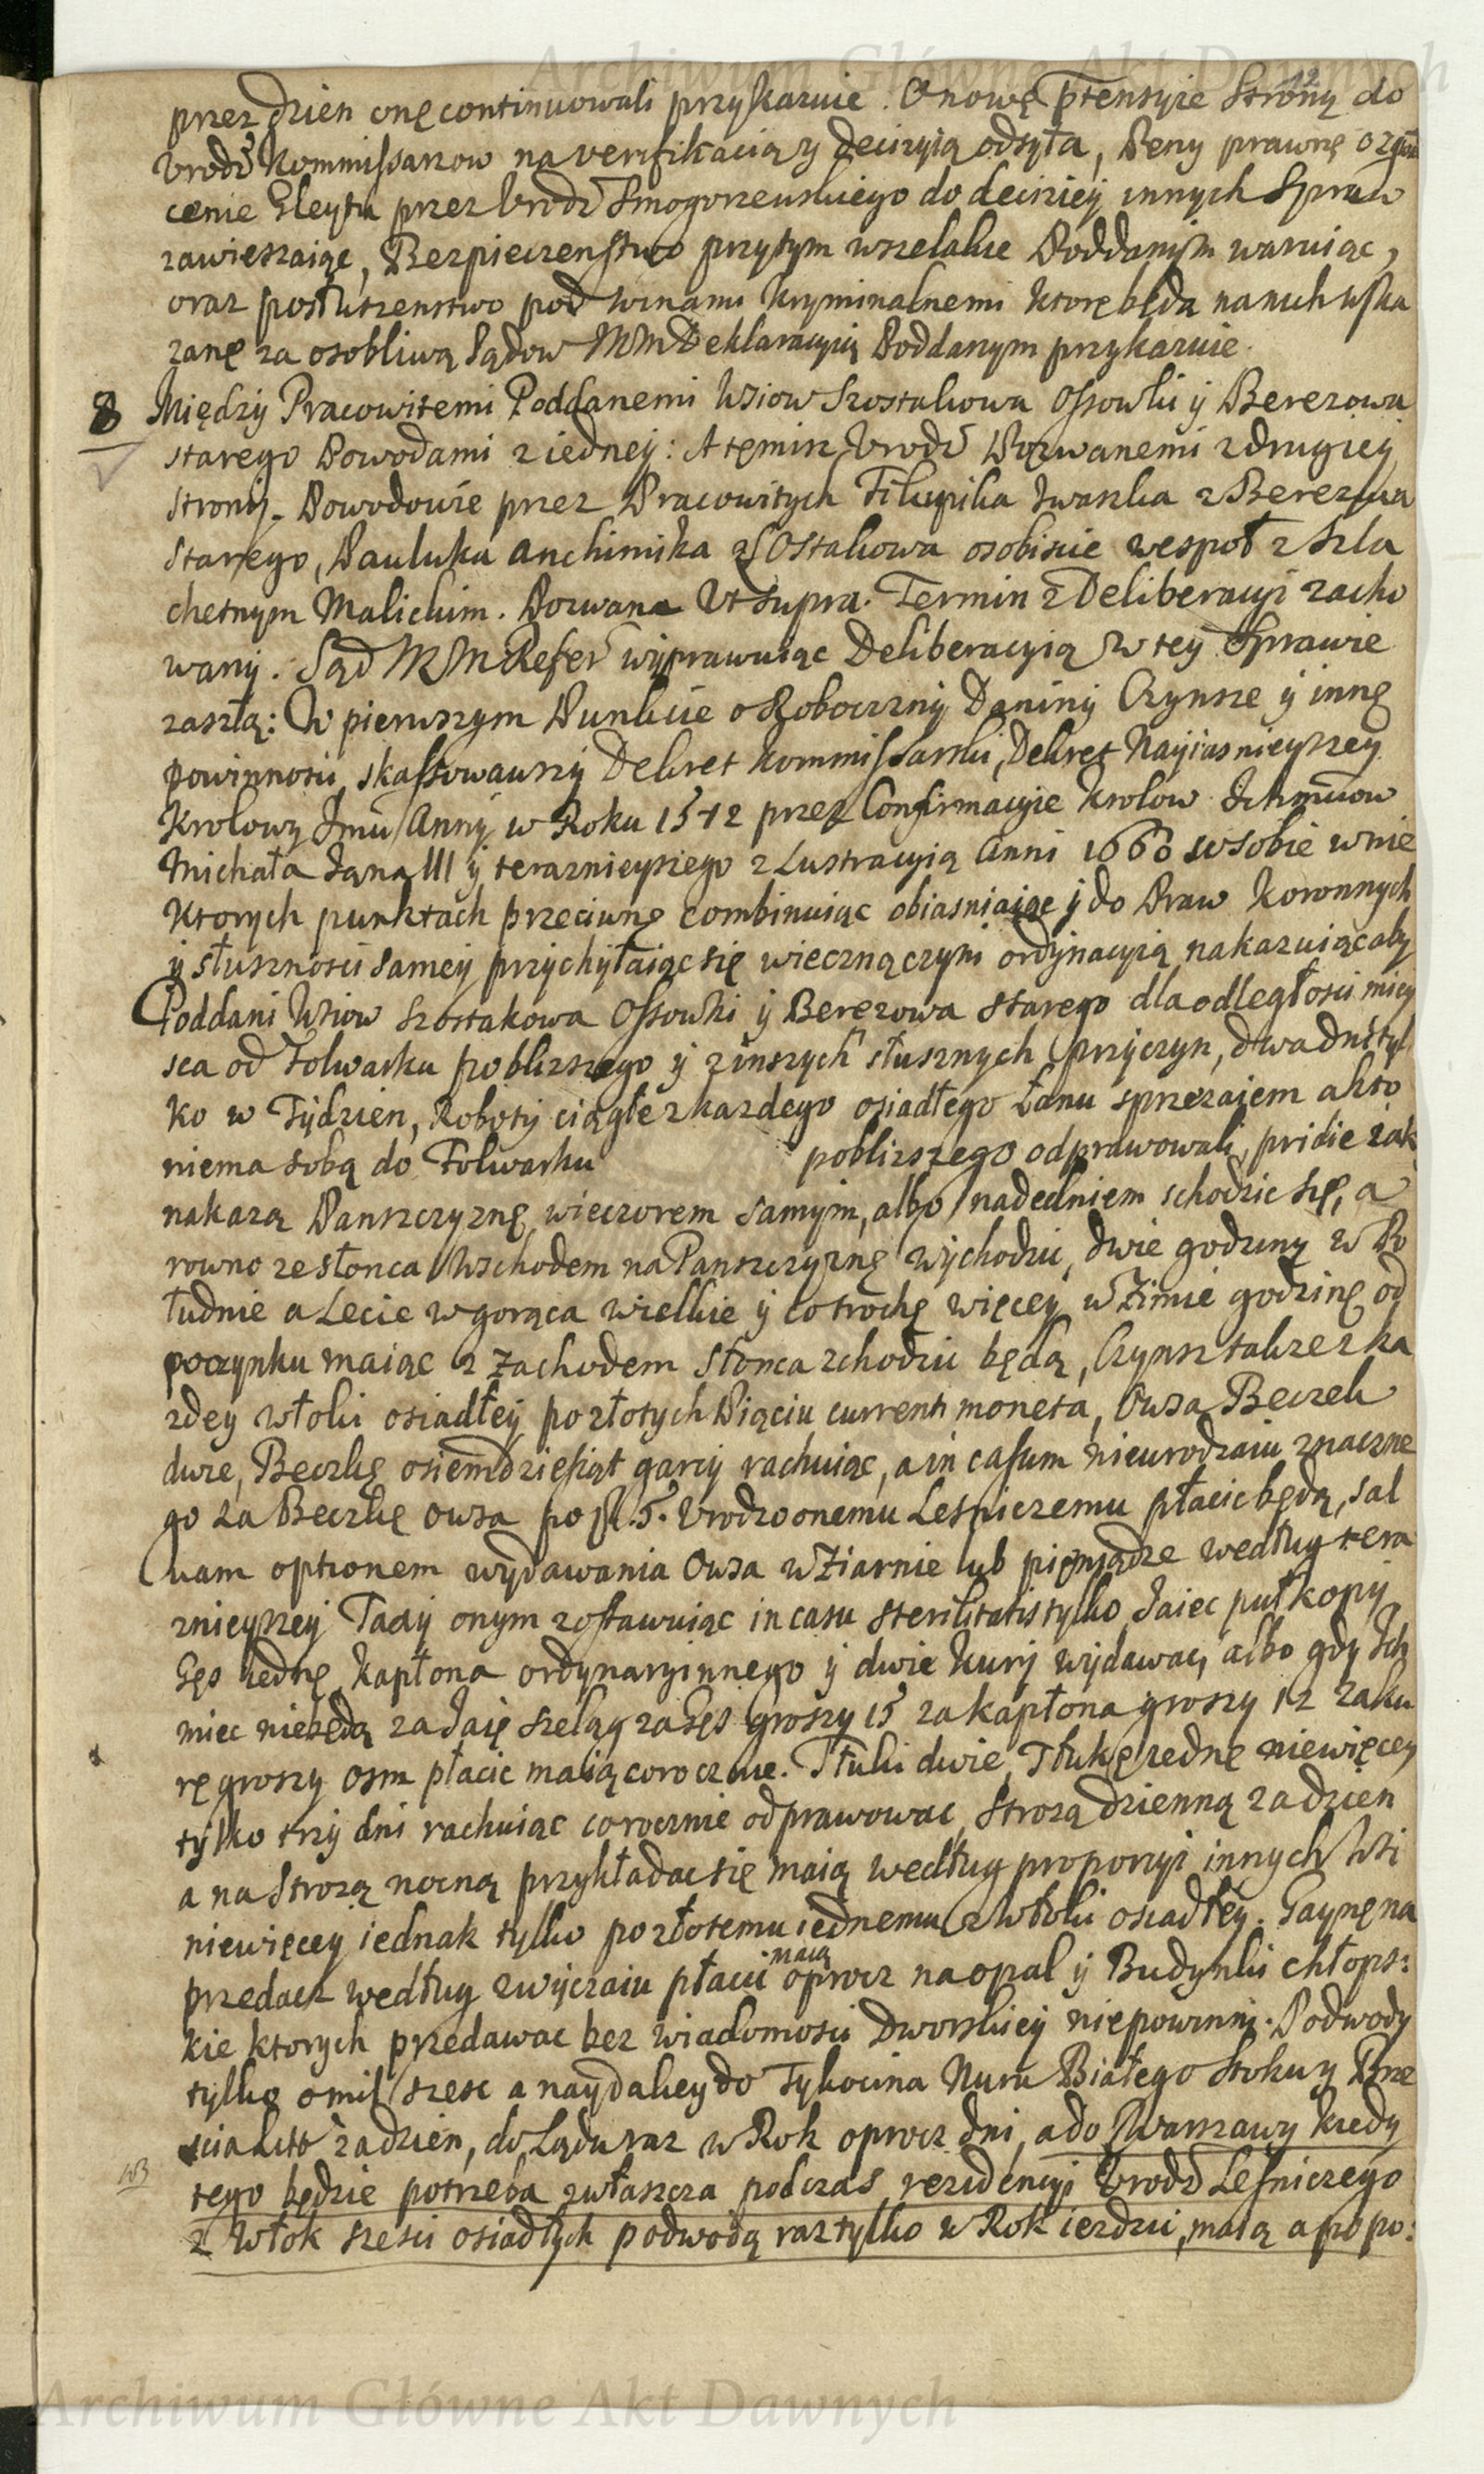 Archiwum Główne Akt Dawnych
12
przez dzien onę continuowali przykazuie. O nowę ptensyie Strony do
Vrodz Kommissarzow na verifikacią y decizyią odsyła, Peny prawnę o zgwał
cenie Gleytu przez Vrodz Smogorzewskiego do deciziey innych Spraw
zawieszaiąc, Bezpieczenstwo przytym wszelakie Poddanym waruiąc,
oraz posłuszenstwo pod winami kryminalnemi ktorę będą na nich wska
zanę za osobliwą Sądow NM Deklaracyią Poddanym przykazuie.
8 Między Pracowitemi Poddanemi Wsiow Szostakowa Ossowki y Berezowa
starego Powodami z iedney: A temisz Vrodz Pozwanemi z drugiey
strony. Powodowie przez Pracowitych Filipika Iwaszka z Berezowa
Starego, Pauluka Anchimika z Szostakowa osobiscie wespoł z Szla
chetnym Malickim. Pozwana Vt supra. Termin z Deliberacyi zacho
wany. Sąd NM Refer wyprawuiąc Deliberacyią w tey Sprawie
zaszłą: W pierwszym Punkcie o Roboczny Daniny Czynsze y innę
powinnosci, skassowawszy Dekret Kommissarski, Dekret Nayiasnieyszey
Krolowy Jmci Anny w Roku 1572 przez Confirmacyie Krolow Ichmciow
Michała Jana III y teraznieyszego z Lustracyią Anni 1660 w sobie w nie
ktorych punktach przeciwnę combinuiąc obiasniaiąc y do Praw Koronnych
y słusznosci samey przychyłaiąc się wieczną czyni ordynacyią nakazuiąc aby
Poddani Wsiow Szostakowa Ossowki y Berezowa starego dla odległosci miey
sca od Folwarku poblizszego y z inszych słusznych przyczyn, dwa dni tyl
ko w Tydzien, Roboty ciągłe z kazdego osiadłego Łanu sprzezaiem a kto
niema sobą do Folwarku poblizszego odprawowali, pridie zas
nakazą Panszczyznę wieczorem samym, albo nadedniem schodzic się, a
rowno ze słonca Wschodem na Panszczyznę wychodzic, dwie godziny w Po
łudnie a Lecie w gorąca wielkie y co trochę więcey w Zimie godzinę od
poczynku maiąc z Zachodem słonca schodzic będą, Czynsz takze z ka
zdey włoki osiadłey po złotych Piąciu currenti moneta, Owsa Beczek
dwie, Beczkę osiemdziesiąt garcy rachuiąc, a in casum nieurodzaiu znaczne
go za Beczkę owsa po fl. 5. Vrodzoonemu Lesniczemu płacic będą, sal
uam optionem wydawania Owsa w Ziarnie lub pieniądze według tera
znieyszey Taxy onym zostawuiąc in casu sterilitatis tylko Jaiec puł kopy
Gęs iednę kapłona ordynaryinnego y dwie kury wydawac, albo gdy Ich
miec niebędą za Jaię szeląg za Gęs groszy 15 za kapłona groszy 12 za ku
rę groszy osm płacic maią corocznie. Tłuki dwie, Tłukę iednę niewięcey
tylko trzy dni rachuiąc corocznie odprawowac, Strozą dzienną za dzien
a na Strozą nocną przykładac się maią według proporcyi innych Wsi
niewięcey iednak tylko po złotemu iednemu z włoki osiadłey. Gaynę na
przedasz według zwyczaiu płacic maią oprocz na opal y Budynki chłops:
kie ktorych przedawac bez wiadomosci Dworskiey niepowinni. Podwody
tylko o mil szesc a naydaley do Tykocina Nura Białego Stoku y Brze
scia Litt za dzien, do Lądu raz w Rok oprocz dni, a do Warszawy kiedy
NB
tego będzie potrzeba zwłaszcza podczas rezidencyi Vrodz Lesniczego
z Włok szesci osiadłych podwodą raz tylko w Rok iezdzic, maią a po po:
Archiwum Główne Akt Dawnych